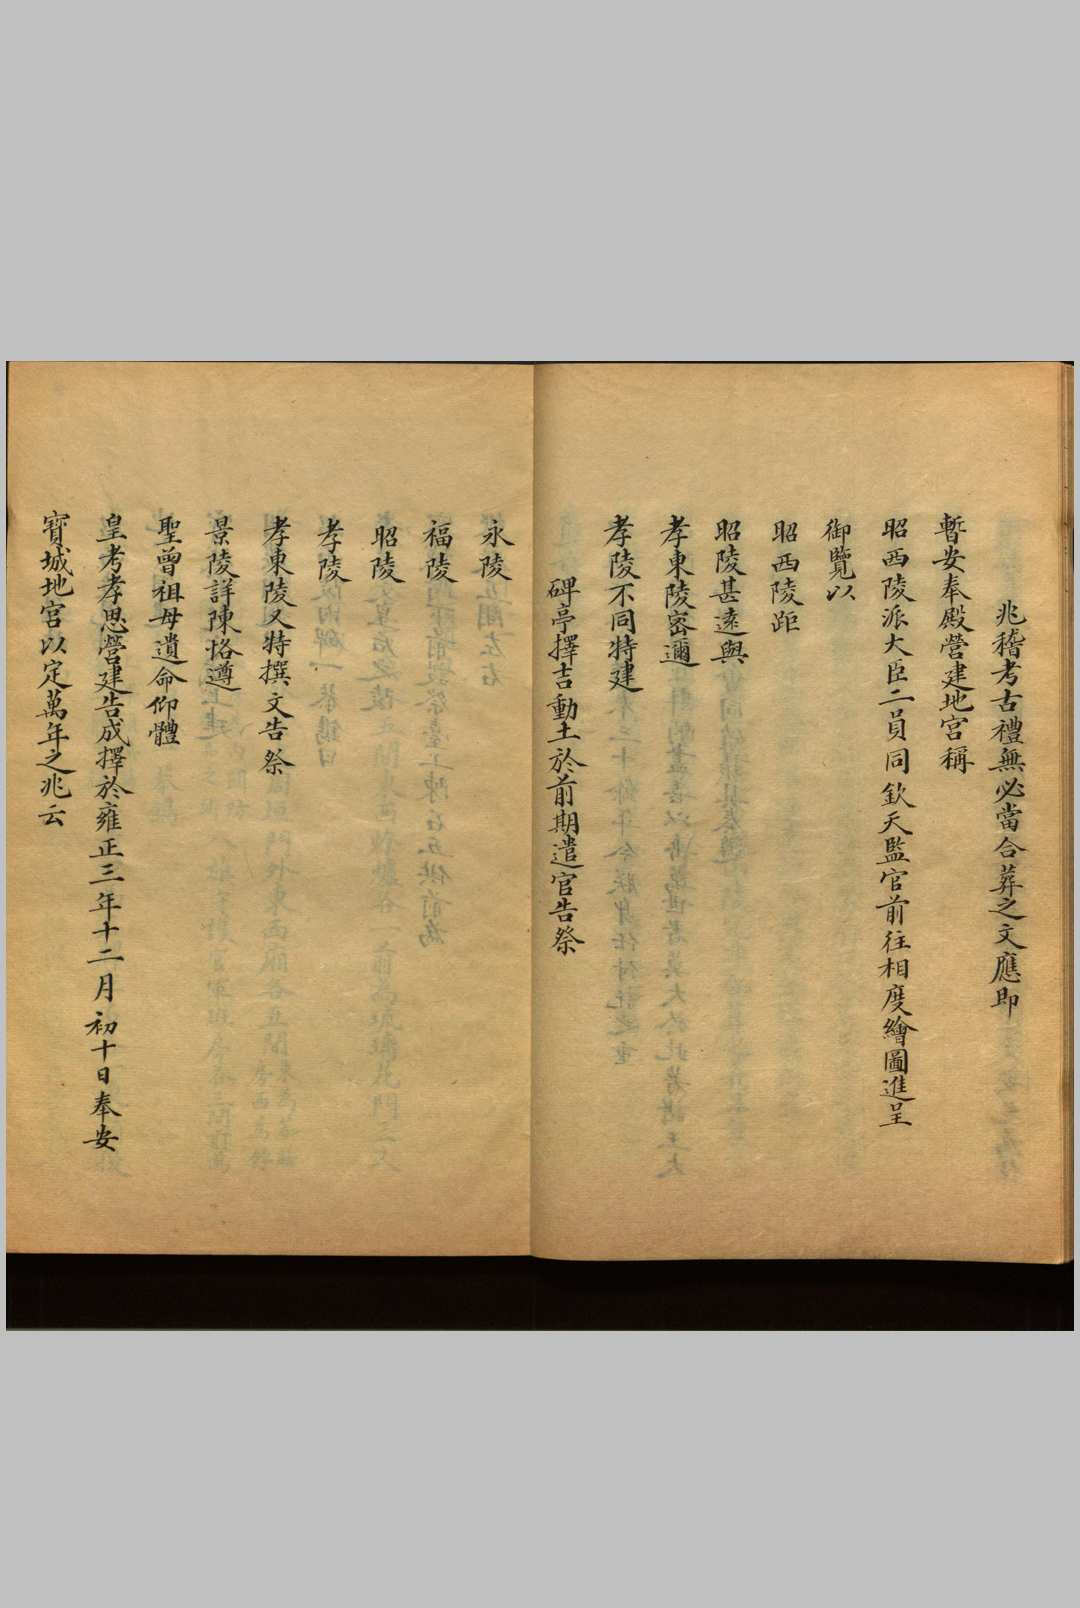 兆稽考古禮無必當合葬之文應即
暫安奉殿營建地宮稱
昭西陵派大臣二員同欽天監官前往相度繪圖進呈
御覽以
昭西陵距
昭陵甚遠與
孝東陵密邇
孝陵不同特建
碑亭擇吉動土於前期遣官告祭
永陵
福陵
昭陵
孝陵
孝東陵又特撰文告祭
景陵詳陳恪遵
聖曾祖母遺命仰體
皇考孝思營建告成擇於雍正三年十二月初十日奉安
寶城地宮以定萬年之兆云